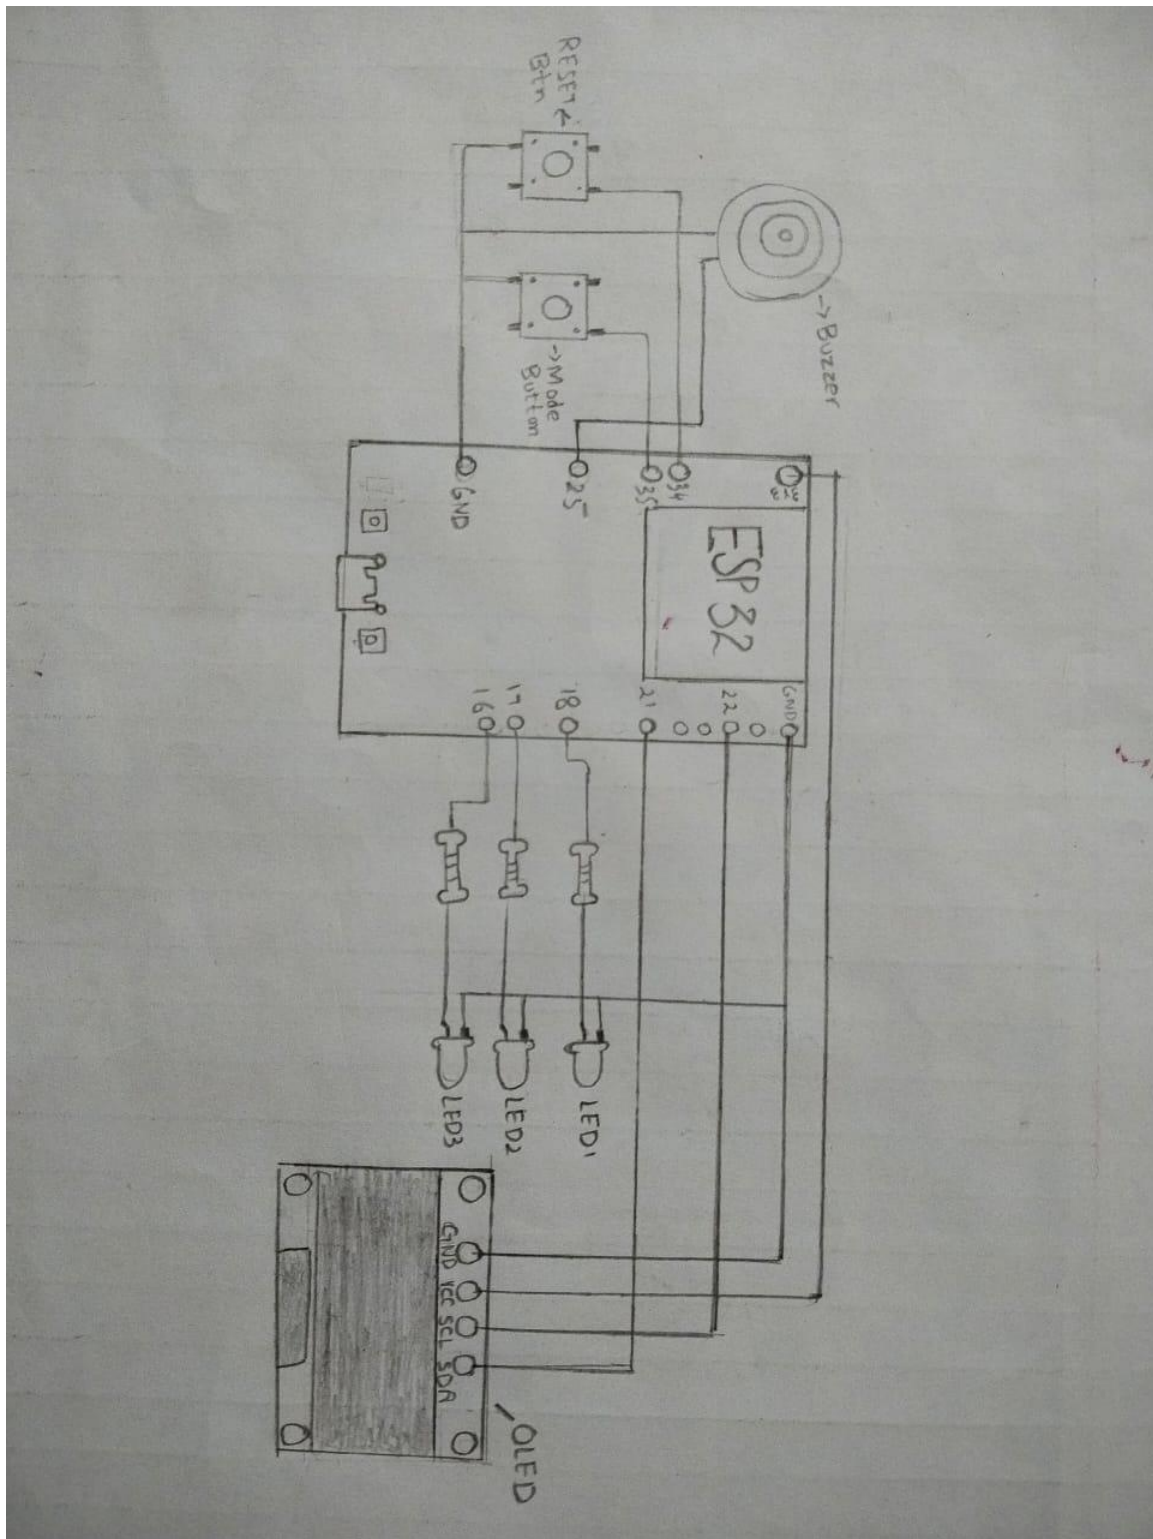 RESET
Btn
Buzzer
Mode
Button
GND
25
35
34
3v3
ESP32
16
17
18
21
22
GND
LED3
LED2
LED1
GND
VCC
SCL
SDA
OLED